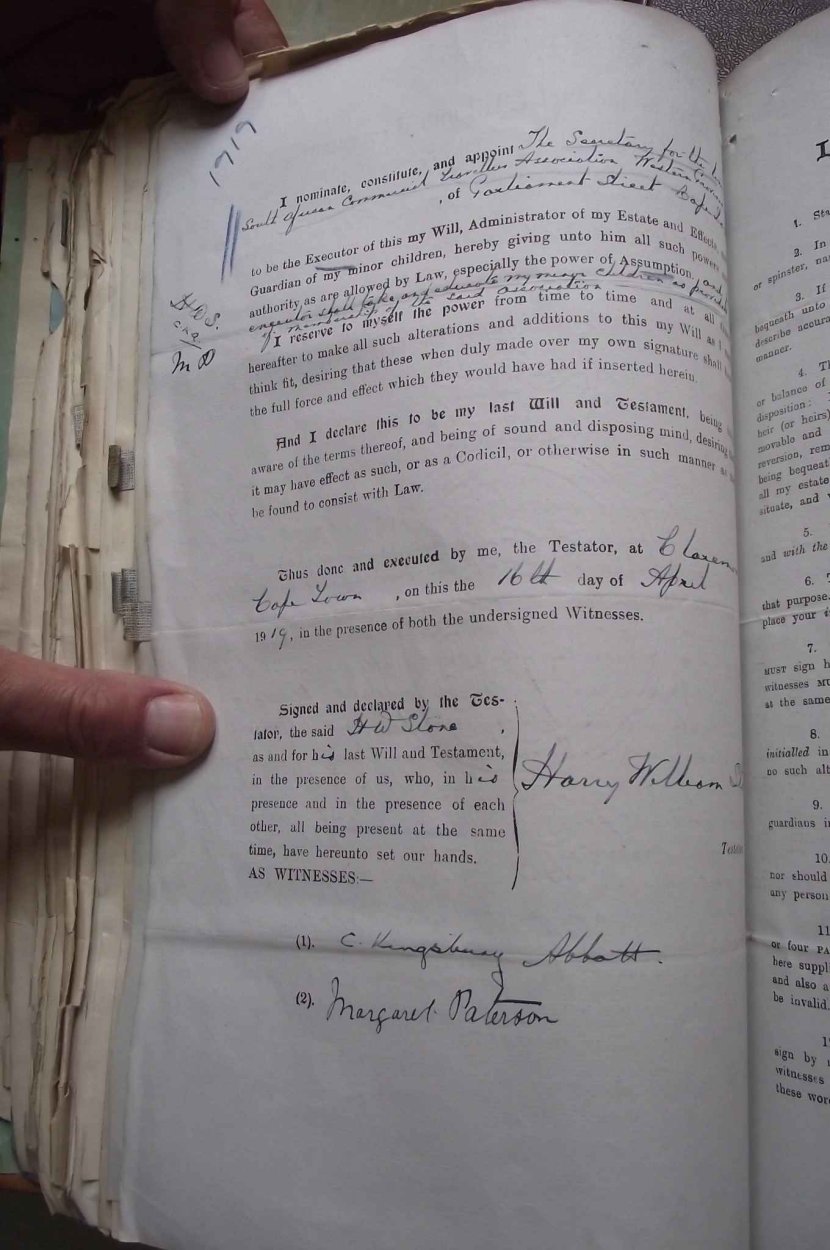 1919
I nominate, constitute, and appoint The Secretary for the
South African Commercial Travellers Association Western
, of Parliament Street Cape
to be the Executor of this my Will, Administrator of my Estate and Effects
Guardian of my minor children, hereby giving unto him all such powers
authority as are allowed by Law, especially the power of Assumption, and
executor shall take and educate my minor children as
of membership of the said association
H.W.S.
M P
I reserve to myself the power from time to time and at all
hereafter to make all such alterations and additions to this my Will as I
think fit, desiring that these when duly made over my own signature shall
the full force and effect which they would have had if inserted herein.
And I declare this to be my last Will and Testament, being
aware of the terms thereof, and being of sound and disposing mind, desiring
it may have effect as such, or as a Codicil, or otherwise in such manner as
be found to consist with Law.
Thus done and executed by me, the Testator, at
Cape Town , on this the 16th day of April
1919, in the presence of both the undersigned Witnesses.
Signed and declared by the Tes-
tator, the said H W Stone ,
as and for his last Will and Testament,
in the presence of us, who, in his
presence and in the presence of each
other, all being present at the same
time, have hereunto set our hands.
AS WITNESSES:—
Harry William
(1). C. Kingsbury Abbott.
(2). Margaret Paterson
1.
2. In
or spinster,
3. If
bequeath unto
describe
manner.
4.
or balance of
disposition:
heir (or heirs)
movable and
reversion,
being
all my estate
situate, and
5.
and with the
6.
that purpose.
place your
7.
MUST sign
witnesses
at the same
8.
initialled in
no such
9.
guardians
10.
nor should
any person
11
or four
here
and also a
be invalid.
sign by
witnesses
these